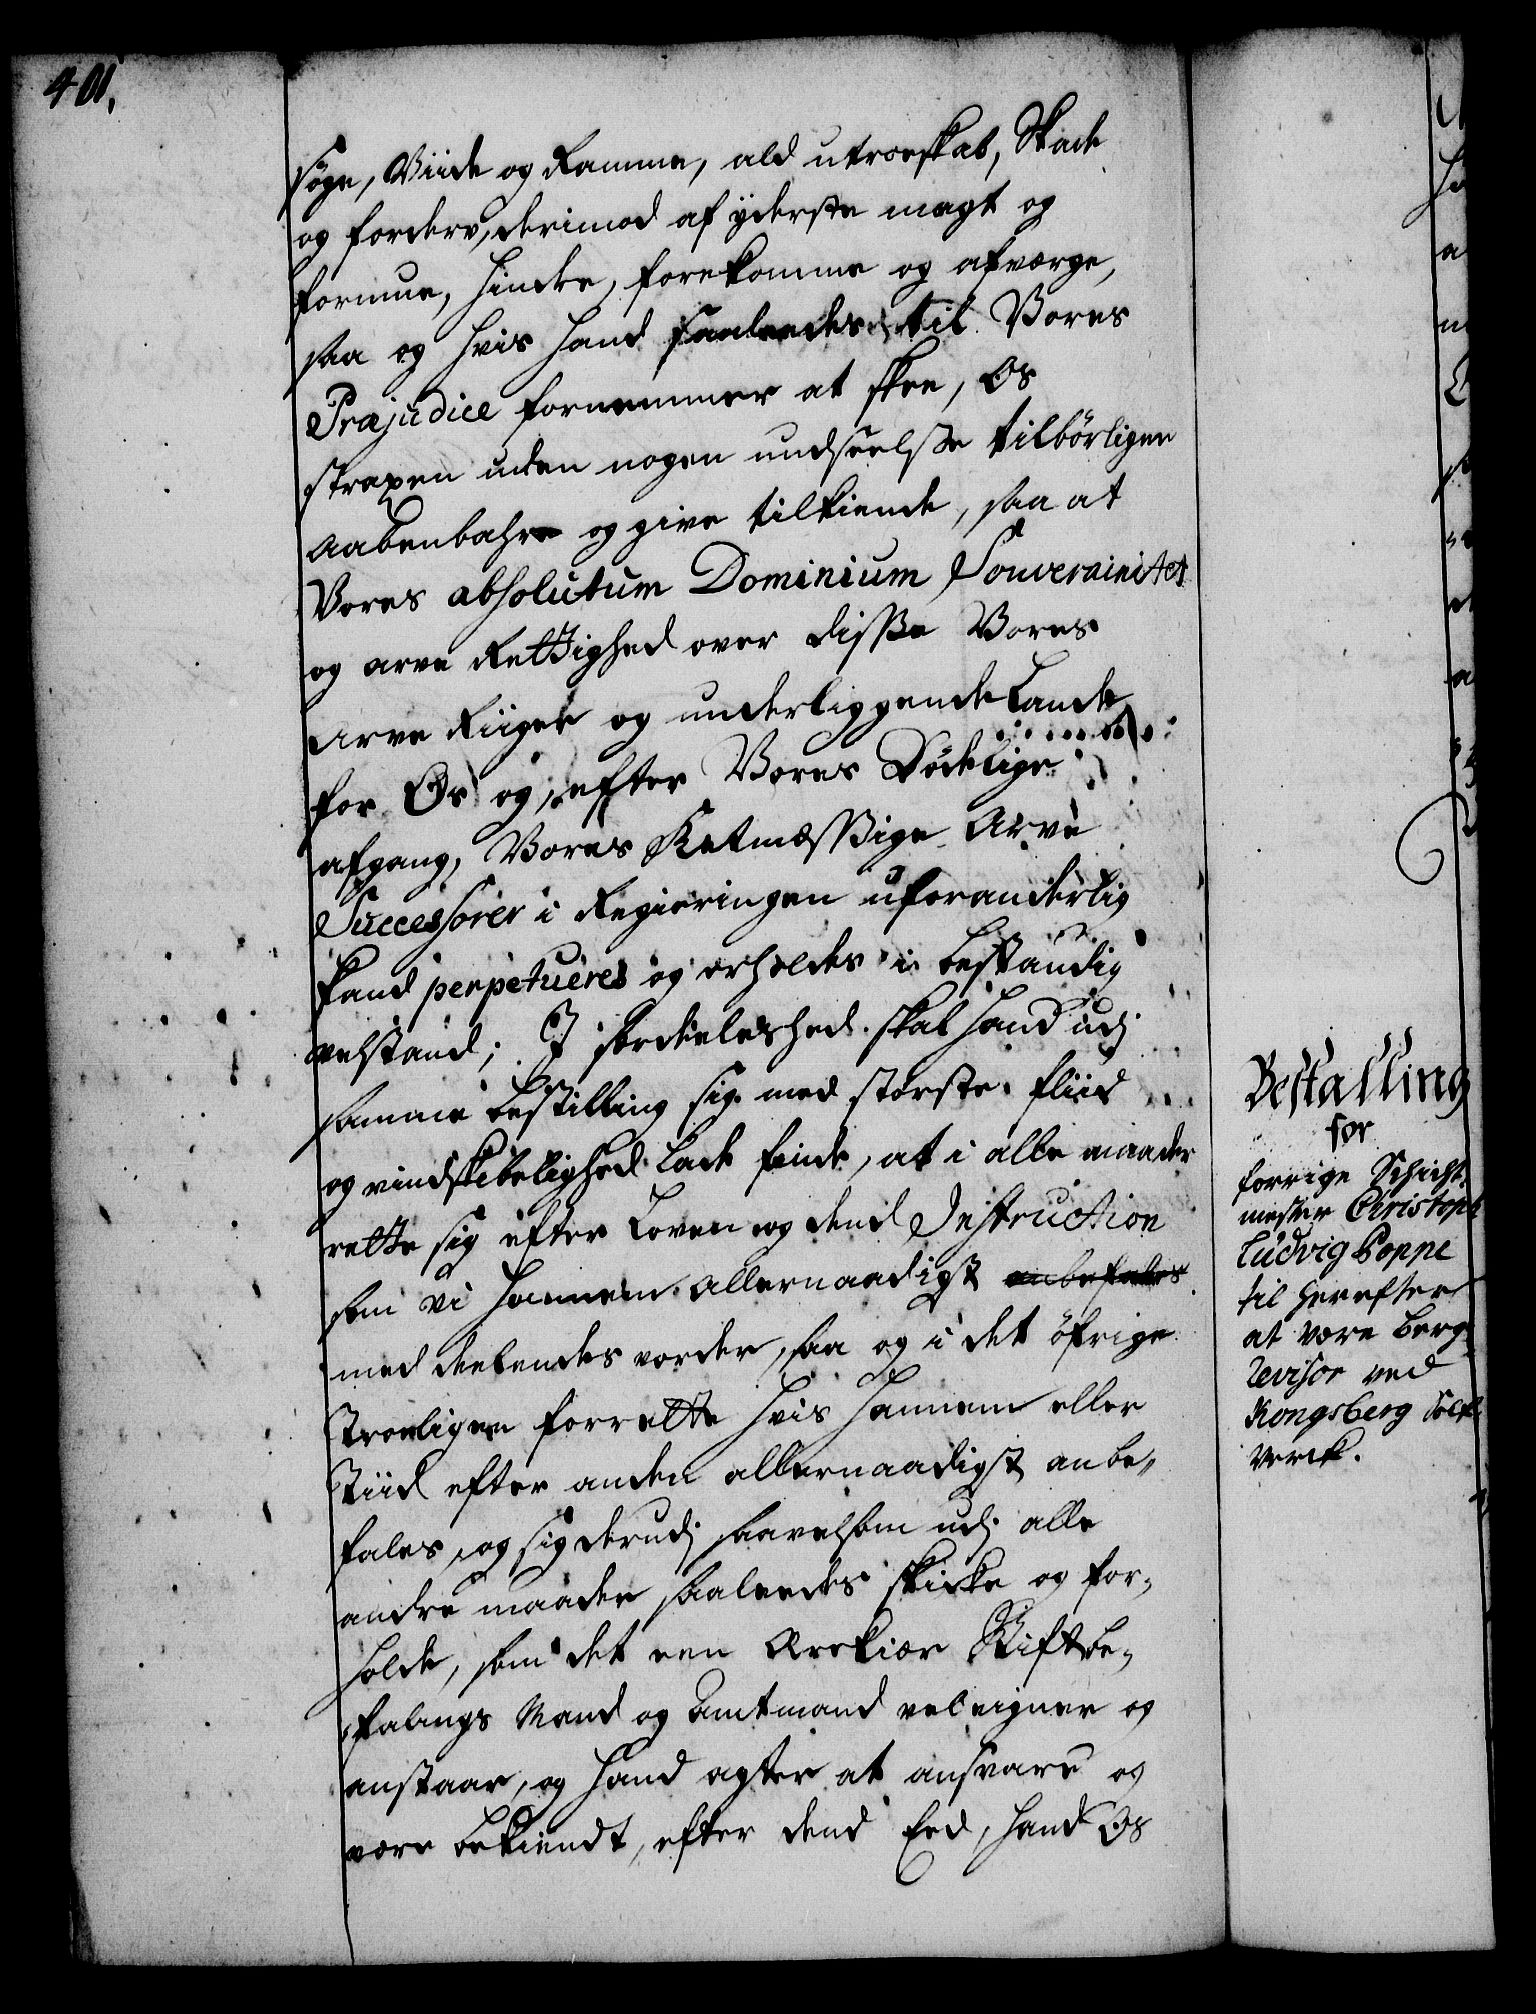 401.
søge, Viide og Ramme, ald utroeskab, Skade
og forderv, derimod af yderste magt og
formue, hindre, forekomme og afverge,
saa og hvis hand saaledes til Vores
Præjudice fornemmer at skee, Os
straxen uden nogen undseelse tilbørligen
aabenbahre og give tilkiende, saa at
Vores absolutum Dominium Souverainitet
og arve Rettighed over disse Vores
Arve Riiger og underliggende Lande
for Os og efter Vores Dødelige
afgang, Vores Retmæssige Arve
Successorer i Regieringen uforanderlig
kand perpetueres og erholdes i bestandig
velstand; I særdeleshed skal hand udj
samme bestilling sig med største fliid
og vindskibelighed lade finde, at i alle maader
rette sig efter Loven og dend Instruction
som Vi hannem allernaadigst anbefales
med deelendes vorder, saa og i det öfrige
Troeligen forrette hvis hannem eller
Tiid efter anden allernaadigst anbe-
fales, og sig derudj saavelsom udj alle
andre maader saaledes skicke og for-
holde, som det een Ærekiær Stiftbe-
falings Mand og Amtmand vel eigner og
anstaar, og hand agter at ansvare og
være bekiendt, efter dend Eed, hand Os
Bestalling
for
forrige Schicht-
mester Christoph
Ludvig Poppe
til herefter
at være Berg-
revisor ved
Kongsberg Sølf-
verck.